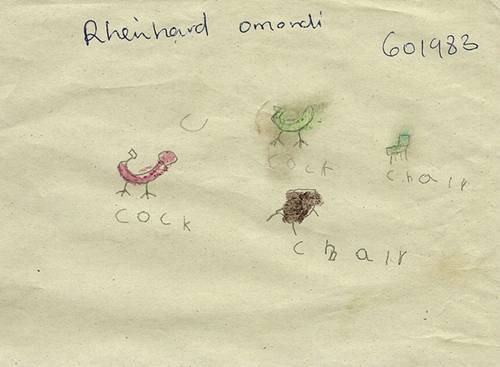 Rheinhard omondi
601983
C
cock
chair
cock
chair